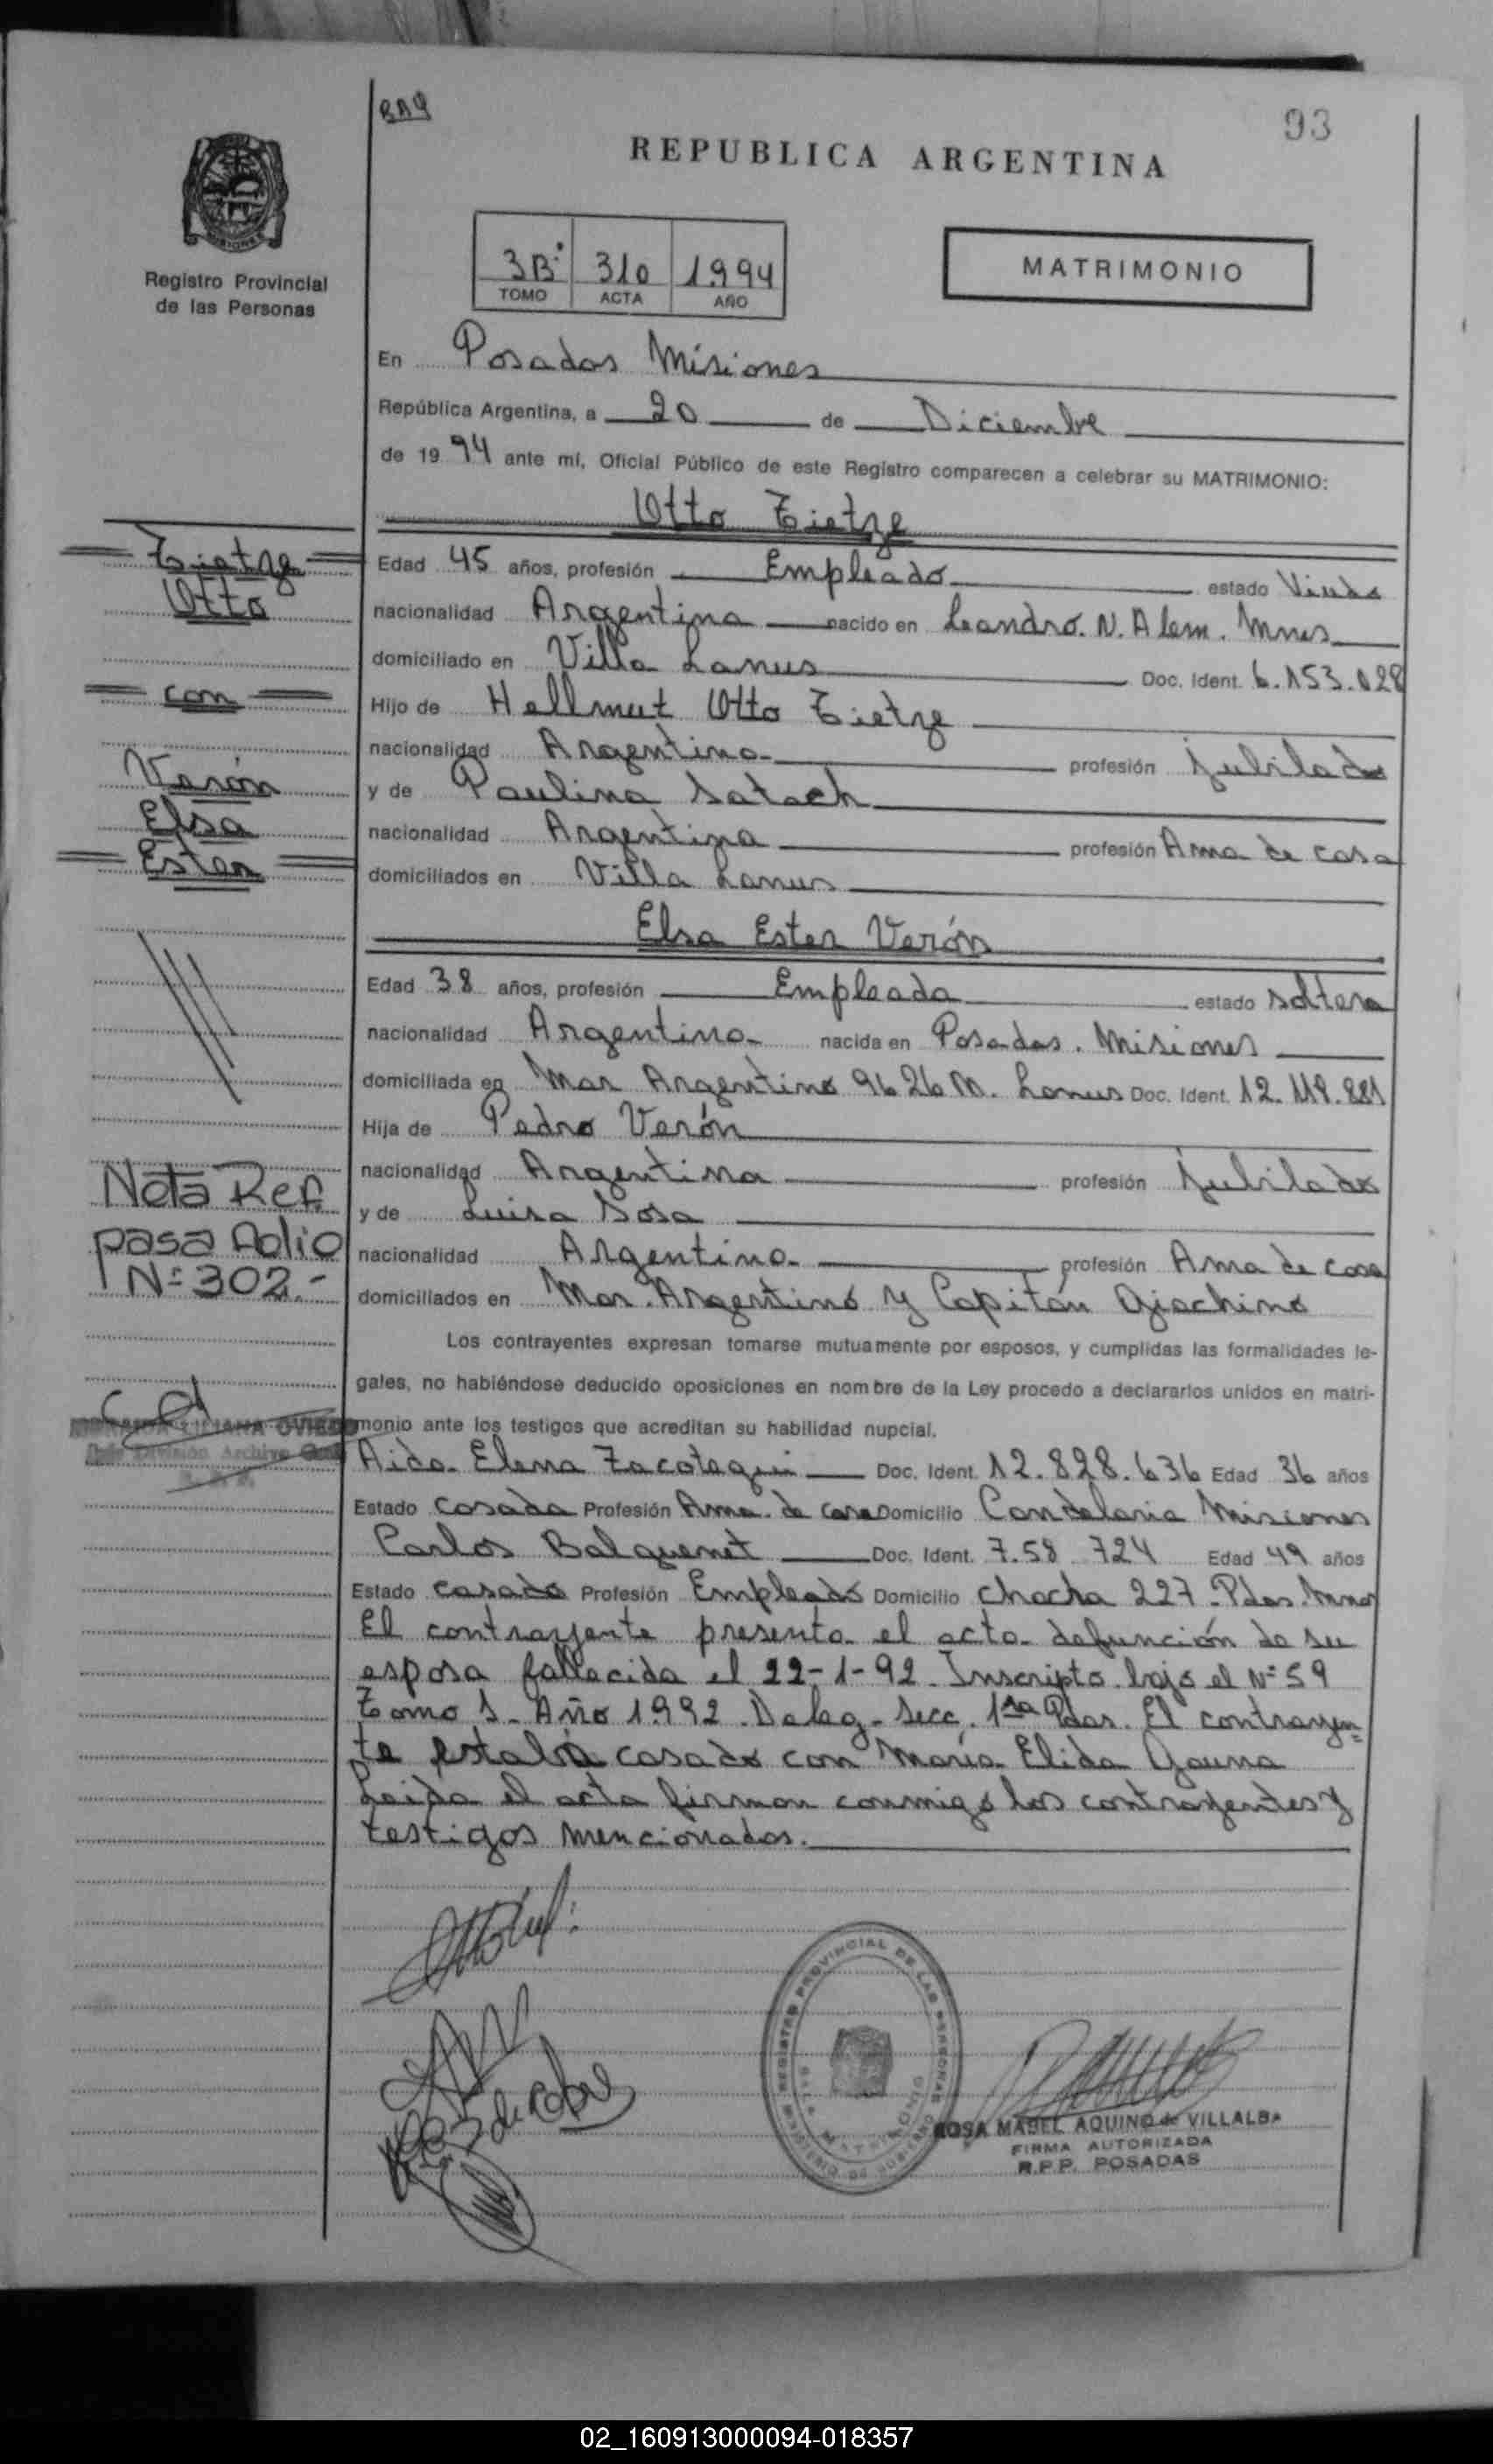 BA9
93
REPUBLICA ARGENTINA
MISIONES
Registro Provincial
de las Personas
3B: 310 1.994
TOMO ACTA AÑO
MATRIMONIO
En Posadas Misiones
República Argentina, a 20 de Diciembre
de 19 94 ante mí, Oficial Público de este Registro comparecen a celebrar su MATRIMONIO:
Otto Tietze
Tietze
Otto
con
Verón
Elsa
Ester
Edad 45 años, profesión Empleado estado Viudo
nacionalidad Argentina nacido en Leandro. N. Alem. Mnes
domiciliado en Villa Lanus Doc. Ident. 6.153.028
Hijo de Hellmut Otto Tietze
nacionalidad Argentina profesión Jubilado
y de Paulina Satach
nacionalidad Argentina profesión Ama de casa
domiciliados en Villa Lanus
Elsa Ester Verón
Edad 38 años, profesión Empleada estado soltera
nacionalidad Argentina nacida en Posadas. Misiones
domiciliada en Mar Argentino 9626 M. Lanus Doc. Ident. 12.118.881
Hija de Pedro Verón
nacionalidad Argentina profesión Jubilado
y de Luisa Sosa
nacionalidad Argentina profesión Ama de casa
domiciliados en Mar. Argentino y Capitán Giachino
Nota Ref.
pasa folio
Nº 302.-
Los contrayentes expresan tomarse mutuamente por esposos, y cumplidas las formalidades le-
gales, no habiéndose deducido oposiciones en nombre de la Ley procedo a declararlos unidos en matri-
monio ante los testigos que acreditan su habilidad nupcial.
LILIANA OVIEDO
División Archivo
Aida Elena Doc. Ident. 12.828.636 Edad 36 años
Estado casada Profesión Ama de casa Domicilio Candelaria Misiones
Carlos Balquenet Doc. Ident. 7.58 724 Edad 49 años
Estado casado Profesión Empleado Domicilio Chacha 227-Pdas. Mnes
El contrayente presenta el acta defunción de su
esposa fallecida el 22-1-92. Inscripta bajo el Nº 59
Tomo 1- Año 1992. Deleg- Secc. 1ra Pdas. El contrayen=
te estaba casado con María Elida Gauna
Leida el acta firman conmigo los contrayentes y
testigos mencionados.
REGISTRO PROVINCIAL DE LAS PERSONAS
MINISTERIO DE GOBIERNO
MATRIMONIO
ROSA MABEL AQUINO de VILLALBA
FIRMA AUTORIZADA
R.P.P. POSADAS
02_160913000094-018357